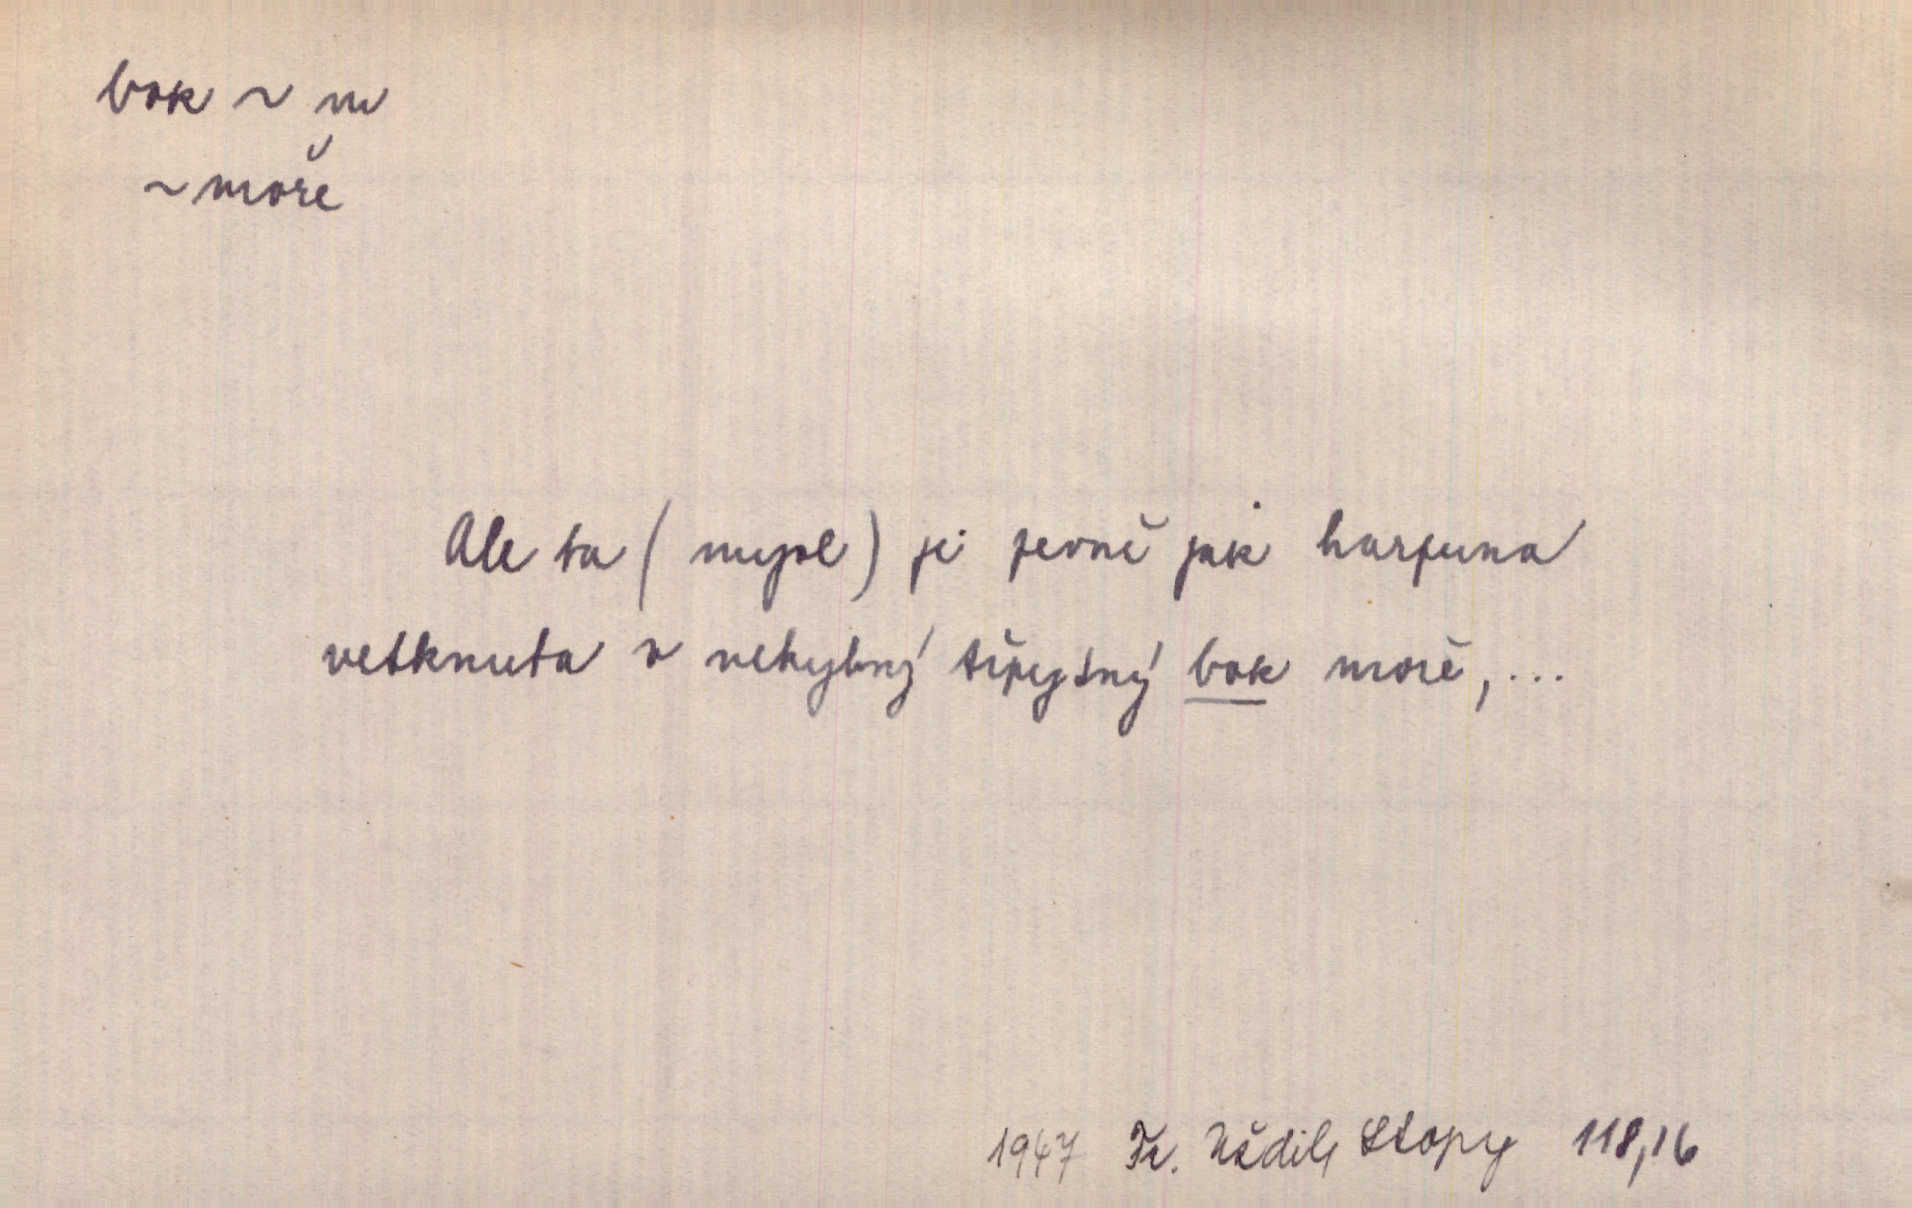 bok ~ m
~ moře
Ale ta (mysl) je pevně jak harpuna
vetknuta v nehybný třpytný bok moře, ...
1947 Fr. Uždil, Stopy 118,16